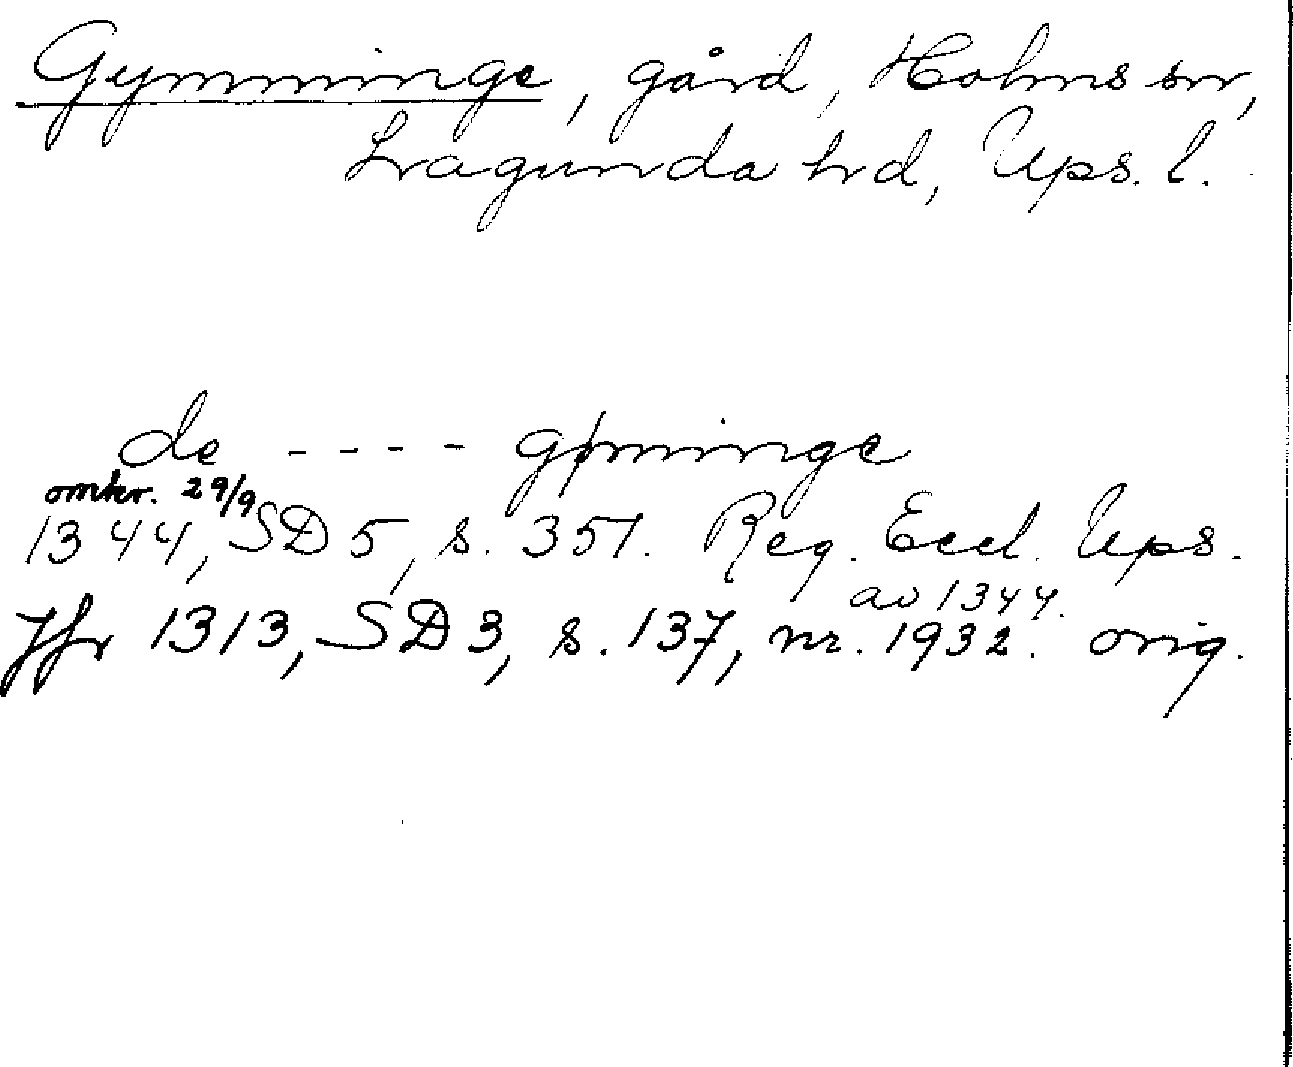 Gymminge, gård, Holms sn,
Lagunda hd, Ups. l.
de - - - - gøminge
omkr. 29/9
1344, SD 5, s. 351. Reg. Eccl. Ups.
av 1344.
Jfr 1313, SD 3, s. 137, nr. 1932. orig.